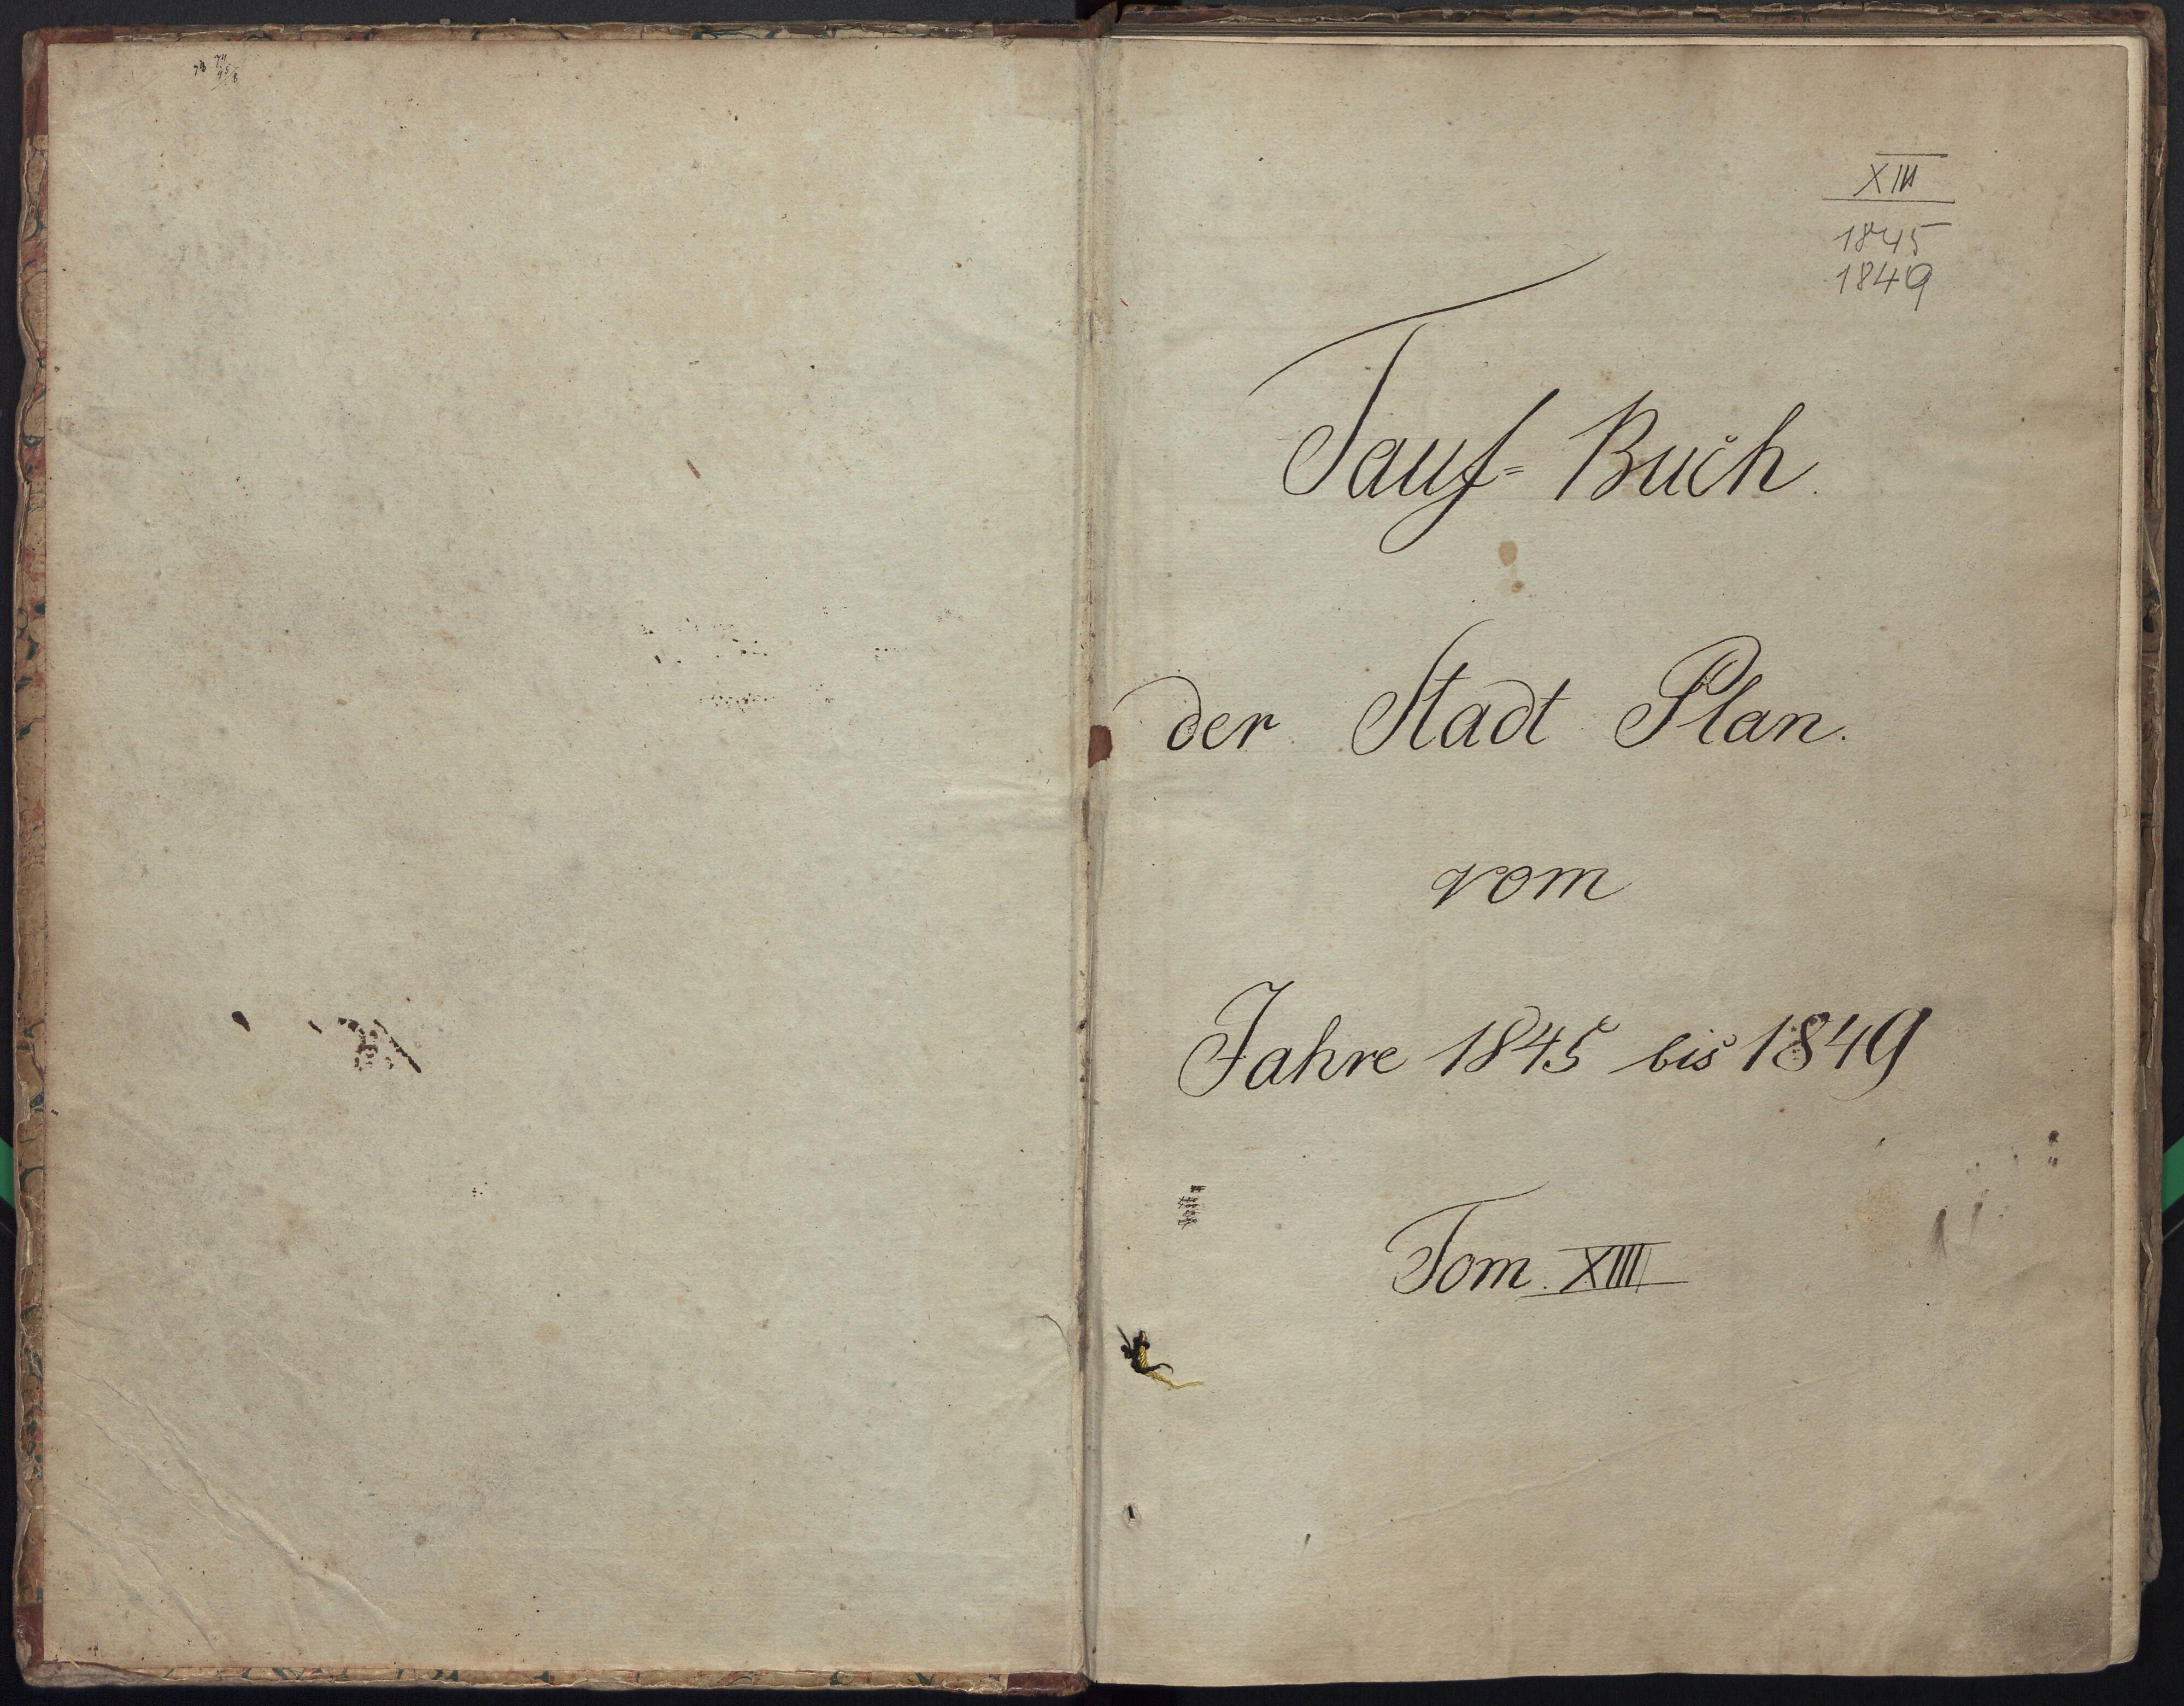 XIII
1845
1849
Tauf= Buch.
der Stadt Plan.
vom
Jahre 1845 bis 1849
Tom. XIII